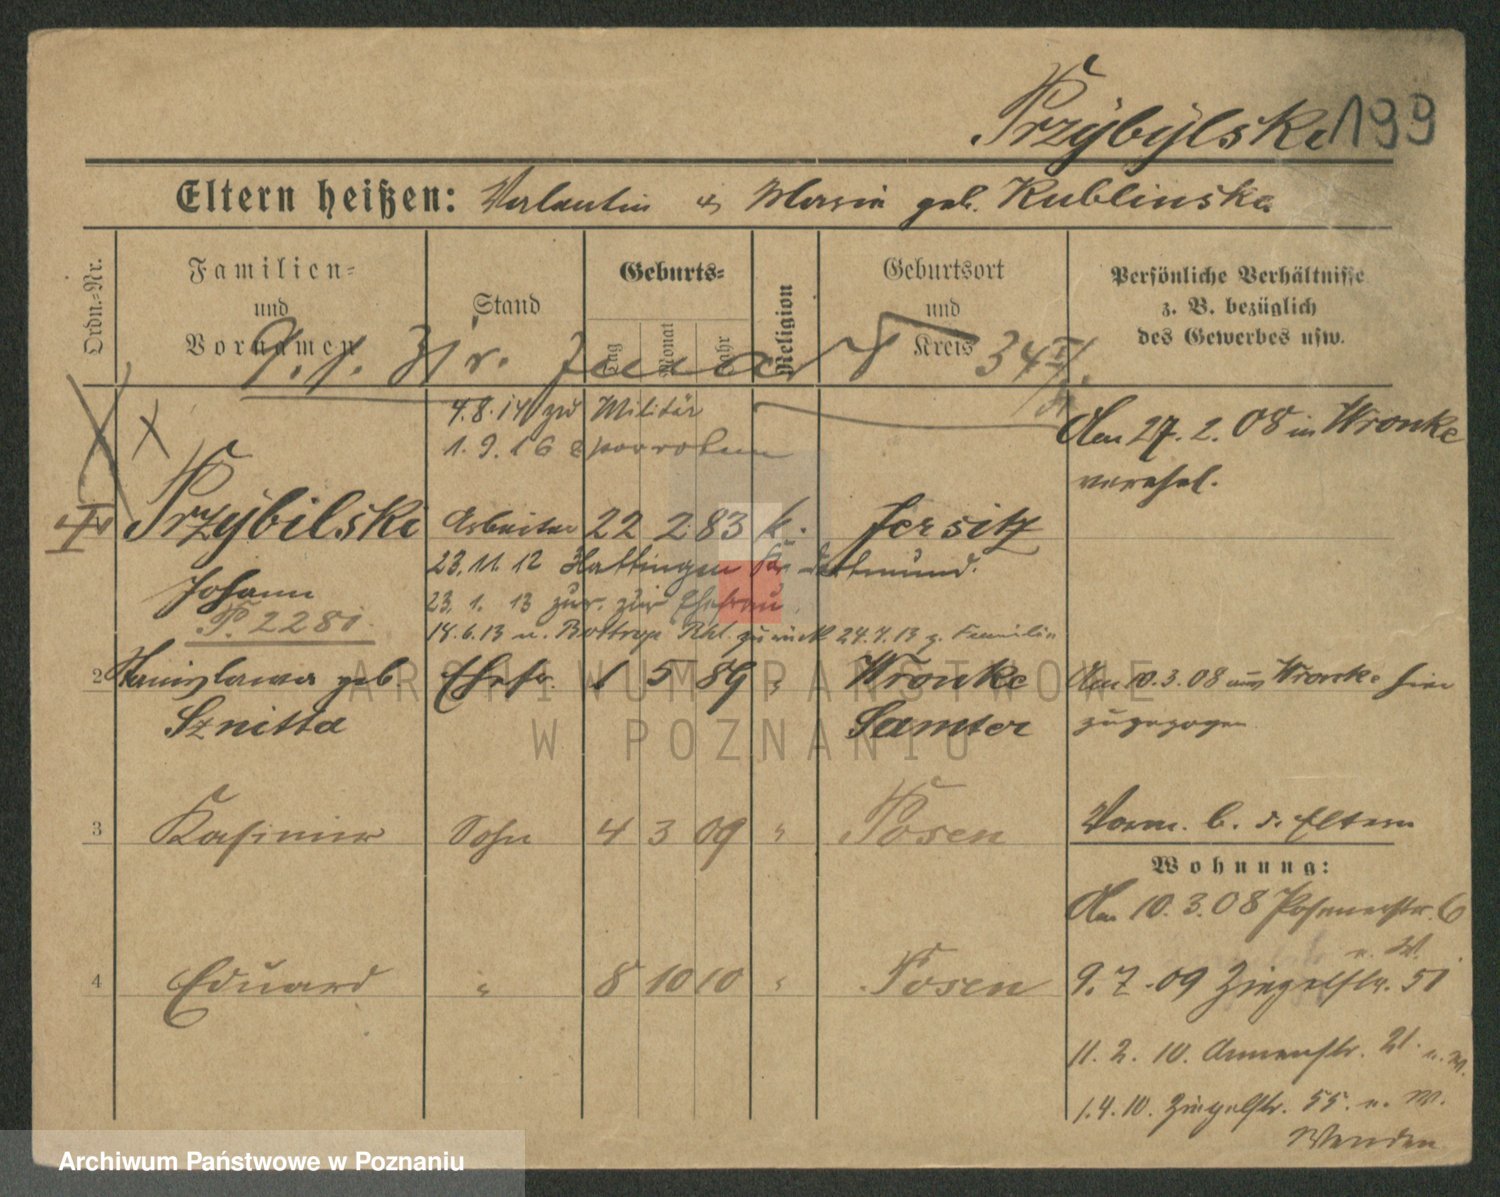 Przÿbÿlski 199
Eltern heißen: Valentin u Maria geb. Kublinska
Ordn.-Nr.
Familien-
und
Vornamen
Stand
Geburts-
Tag
Monat
Jahr
Religion
Geburtsort
und
Kreis
Persönliche Verhältnisse
z. B. bezüglich
des Gewerbes usw.
4.8.14 zu Militär
1.9.16
Am 27.2.08 in Wronke
verehel.
Przÿbilski Arbeiter 22 2 83 k. Jersitz
Johann
P. 2281.
23.11.12 Hattingen Kr. Dortmund.
23.1.13 zur. zur Ehefrau
18.6.13 n. Bottrop Rhl. zurück 24.7.13 z. Familie
2 Stanislawa geb. Ehefr. 1 5 89 " Wronke
Sznitta Samter
Am 10.3.08 aus Wronke hier
zugezogen
3 Kasimir Sohn 4 3 09 " Posen
Vorm. b. d. Eltern
Wohnung:
Am 10.3.08 Posenerstr. 6
n. W.
4 Eduard " 8 10 10 " Posen
9.7.09 Ziegelstr. 51
11.2.10. Annenstr. 21. n. W.
1.4.10. Ziegelstr. 55. n. W.
Wenden
ARCHIWUM PAŃSTWOWE
W POZNANIU
Archiwum Państwowe w Poznaniu